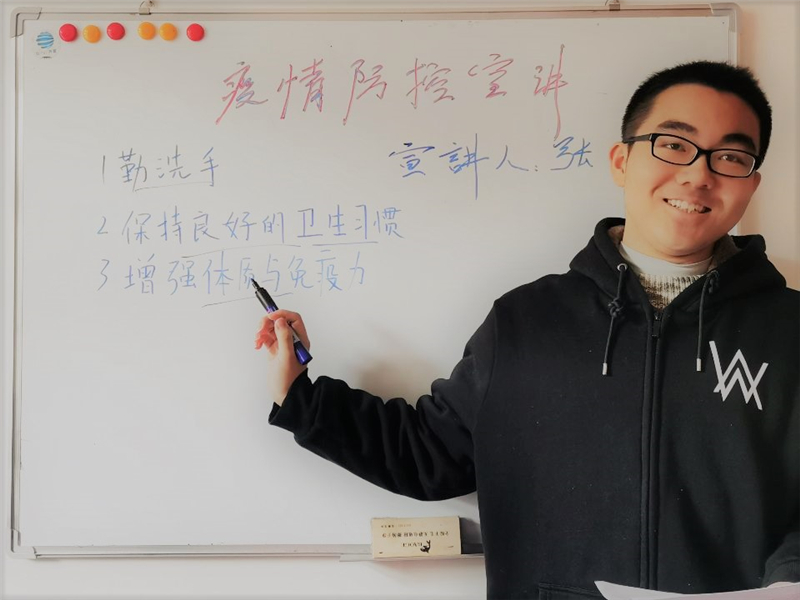 疫情防控宣讲
宣講人:张
1 勤洗手
2 保持良好的卫生习惯
3 增强体质与免疫力